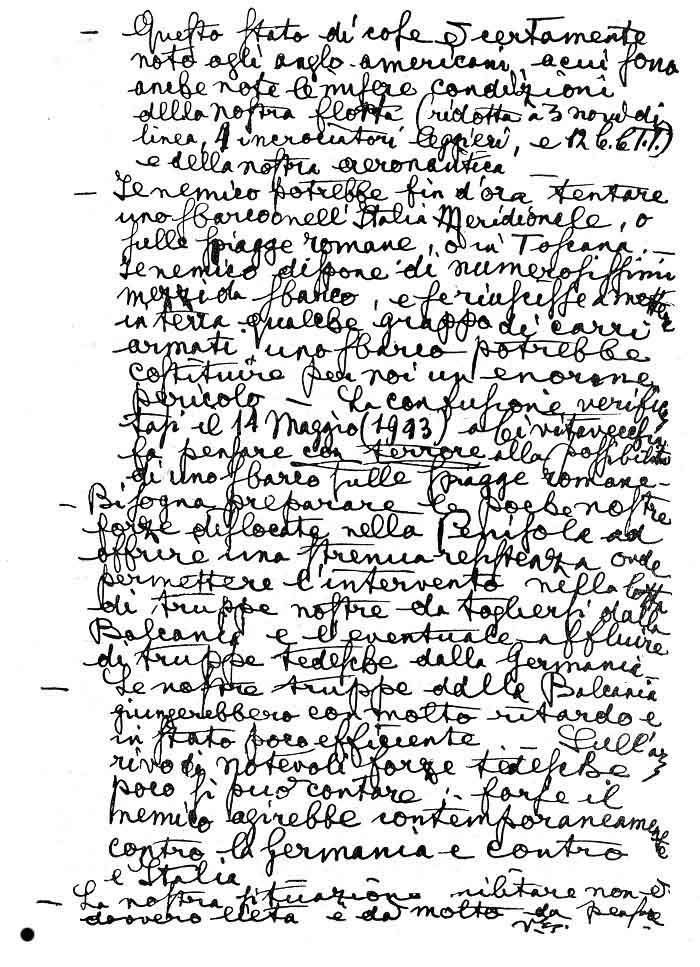 — Questo stato di cose è certamente
noto agli anglo-americani, a cui sono
anche note le misere condizioni
della nostra flotta (ridotta a 3 navi di
linea, 4 incrociatori leggieri, e 12 C.C.T.T.)
e della nostra aeronautica —
— Il nemico potrebbe fin d'ora tentare
uno sbarco nell'Italia Meridionale, o
sulle spiagge romane, o in Toscana.
Il nemico dispone di numerosissimi
mezzi da sbarco, e se riuscisse a mettere
in terra qualche gruppo di carri
armati, uno sbarco potrebbe
costituire per noi un enorme
pericolo — La confusione verifica
tasi il 14 Maggio (1943) a Civitavecchia
fa pensare con terrore alla possibilità
di uno sbarco sulle spiagge romane —
— Bisogna preparare le poche nostre
forze dislocate nella Penisola ad
offrire una strenua resistenza onde
permettere l'intervento nella lotta
di truppe nostre da togliersi dalla
Balcania e l'eventuale affluire
di truppe tedesche dalla Germania
— Le nostre truppe della Balcania
giungerebbero con molto ritardo e
in stato poco efficiente. Sull'ar
rivo di notevoli forze tedesche
poco si può contare: forse il
nemico agirebbe contemporaneamente
contro la Germania e contro
l'Italia
— La nostra situazione militare non è
davvero lieta e dà molto da pensare